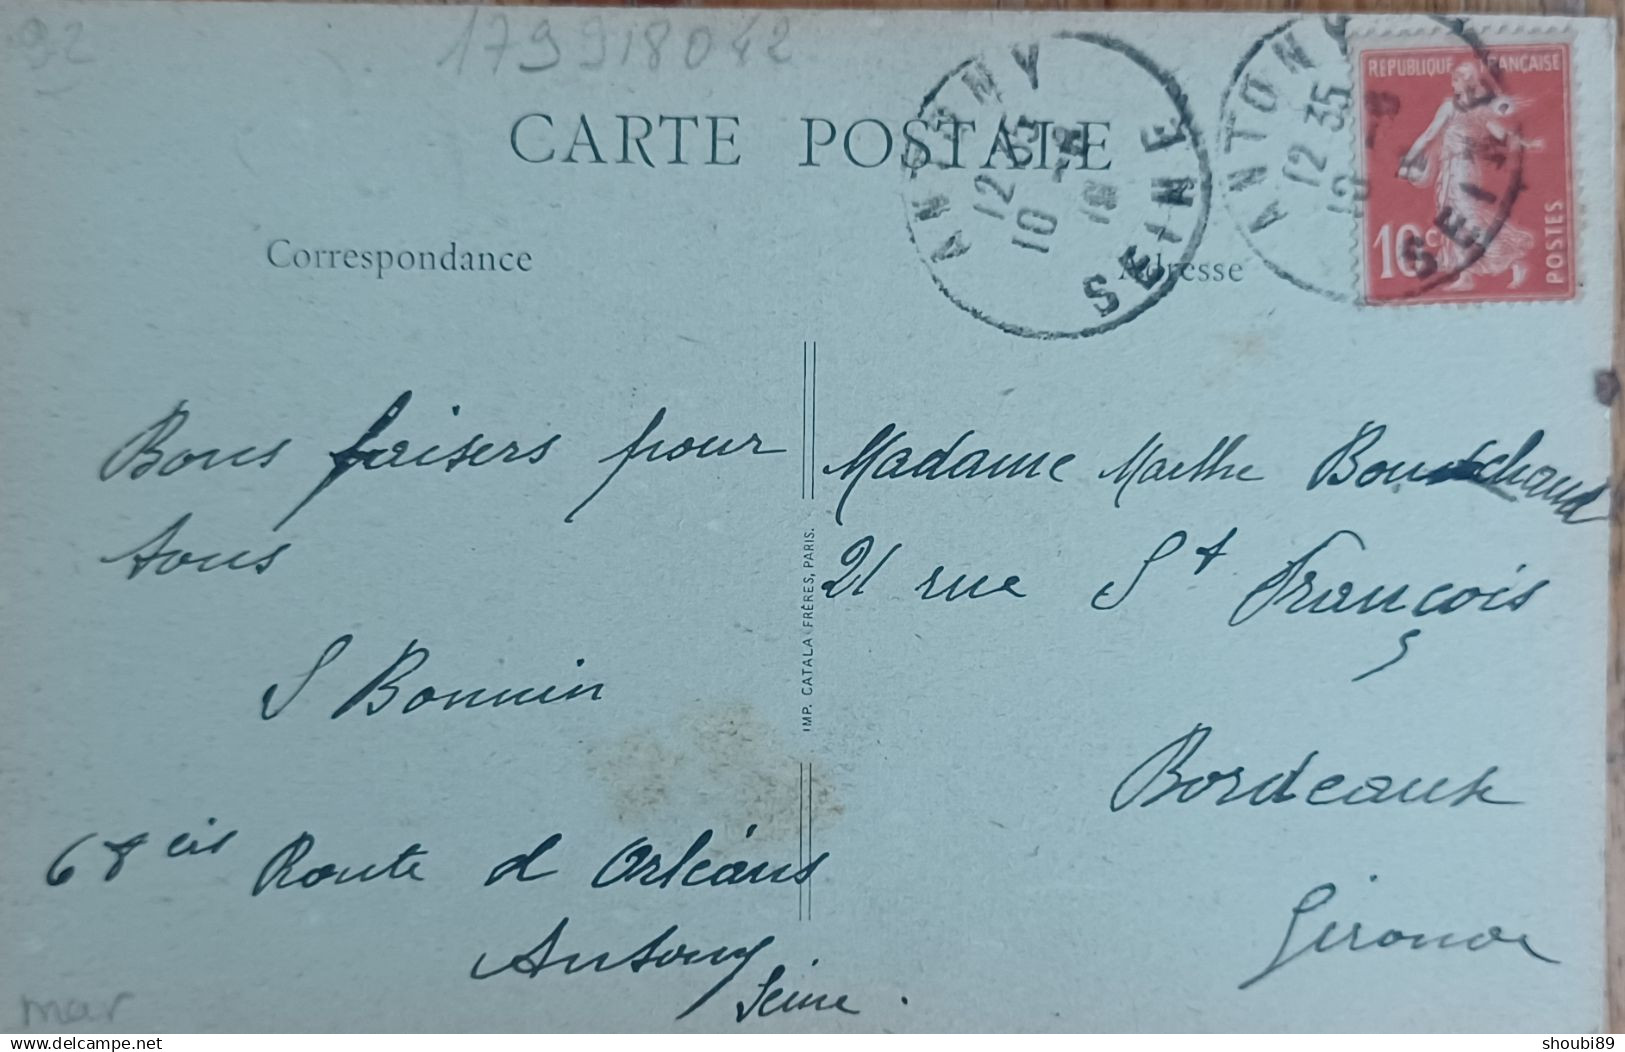 92
179918042
CARTE POSTALE
Correspondance
Adresse
ANTONY
12 35
10 -8
SEINE
ANTONY
12 35
10 -8
SEINE
REPUBLIQUE FRANÇAISE
10 c.
POSTES
Bons baisers pour
tous
S Bonnin
68 bis Route d Orléans
Antony
Seine.
IMP. CATALA FRÈRES, PARIS.
Madame Marthe
21 rue St François
Bordeaux
Gironde
mar
delcampe.net
shoubi89